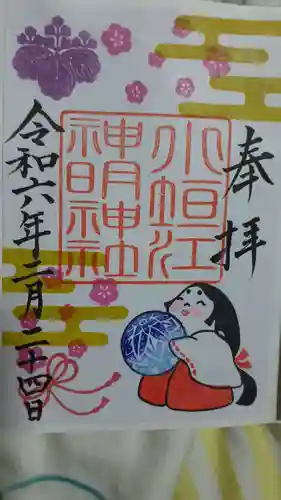 奉拝
小垣江
神明神社
神明社
令和六年二月二十四日